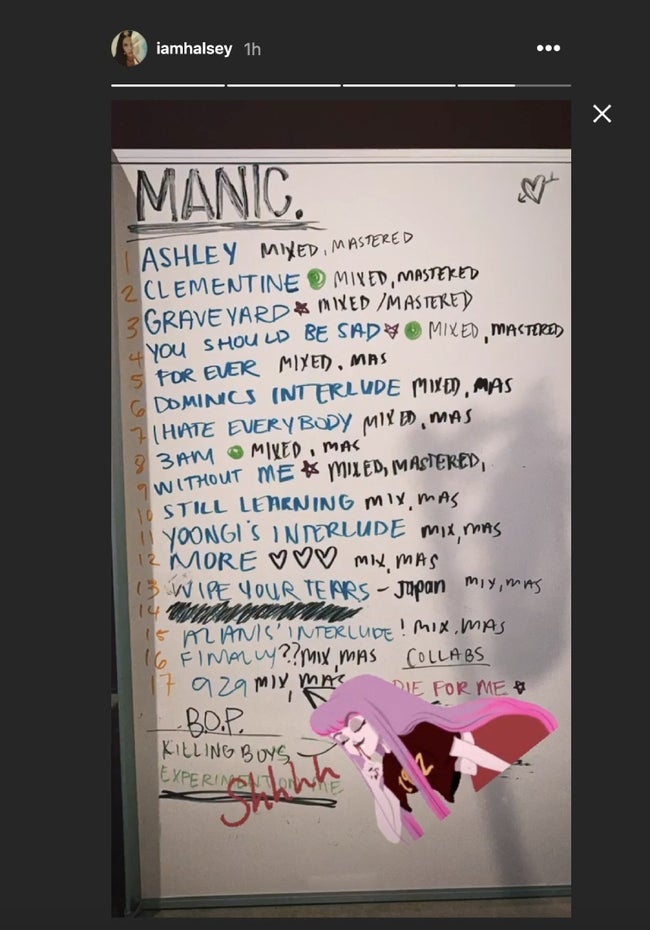 iamhalsey 1h
MANIC.
1 ASHLEY MIXED, MASTERED
2 CLEMENTINE MIXED, MASTERED
3 GRAVEYARD MIXED/MASTERED
4 YOU SHOULD BE SAD MIXED, MASTERED
5 FOR EVER MIXED, MAS
6 DOMINICS INTERLUDE MIXED, MAS
7 I HATE EVERYBODY MIXED, MAS
8 3AM MIXED, MAS
9 WITHOUT ME MIXED, MASTERED,
10 STILL LEARNING MIX, MAS
11 YOONGI'S INTERLUDE MIX, MAS
12 MORE ♡♡♡ MIX, MAS
13 WIPE YOUR TEARS - JAPAN MIX, MAS
14
15 ALANIS' INTERLUDE! MIX, MAS
16 FINALLY?? MIX, MAS COLLABS
17 929 MIX, MAS DIE FOR ME
B.O.P.
KILLING BOYS
EXPERIMENT ON ME
Shhhh